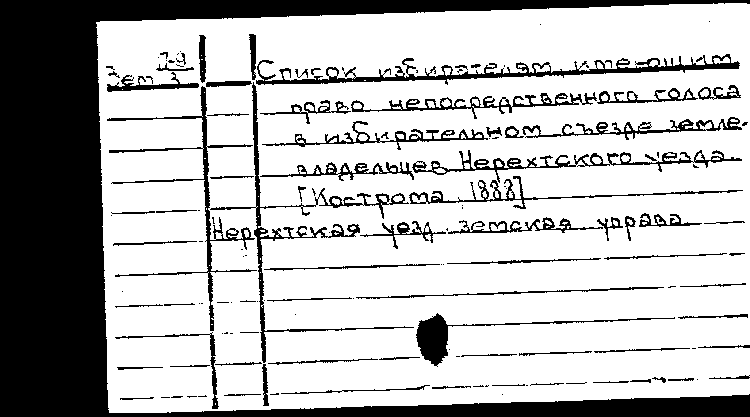 Зем 7-9/3 Список избирателям, имеющим
право непосредственного голоса
в избирательном съезде земле-
владельцев Нерехтского уезда.
[Кострома, 1888]
Нерехтская уезд. земская управа